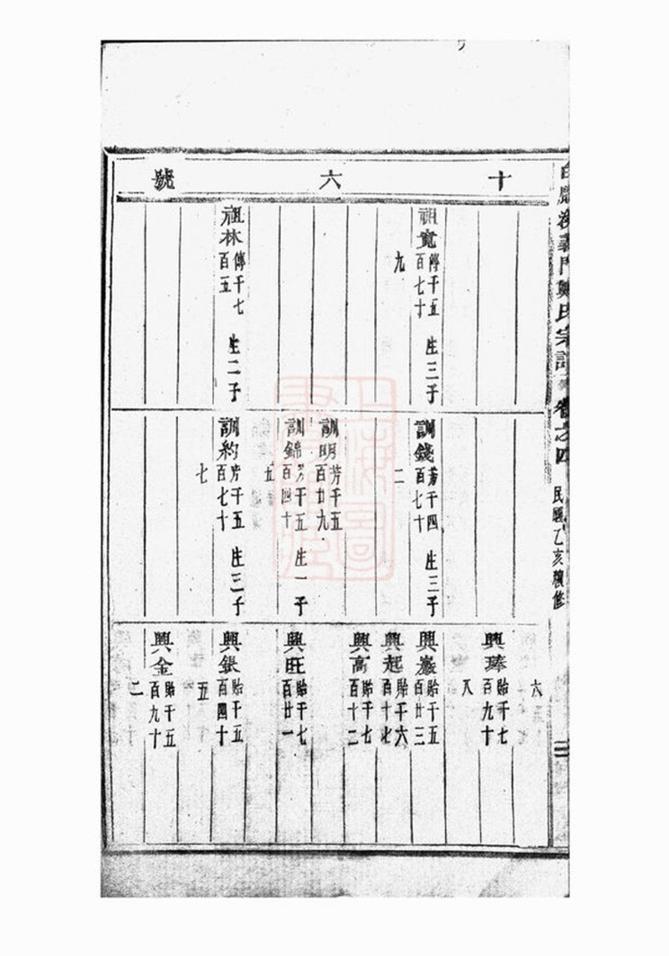 白麟溪義門鄭氏宗譜 卷之四 民國乙亥續修
十六號
祖寬 傳千五百七十九 生三子
祖林 傳千七百五 生二子
訓錢 芳千四百七十二 生三子
訓明 芳千五百廿九
訓錦 芳千五百四十五 生一子
訓約 芳千五百七十七 生三子
六
興瑧 貽千七百九十八
興巖 貽千五百廿三
興起 貽千六百十七
興高 貽千七百十二
興旺 貽千七百廿一
興銀 貽千五百四十五
興金 貽千五百九十二
上海圖書館藏